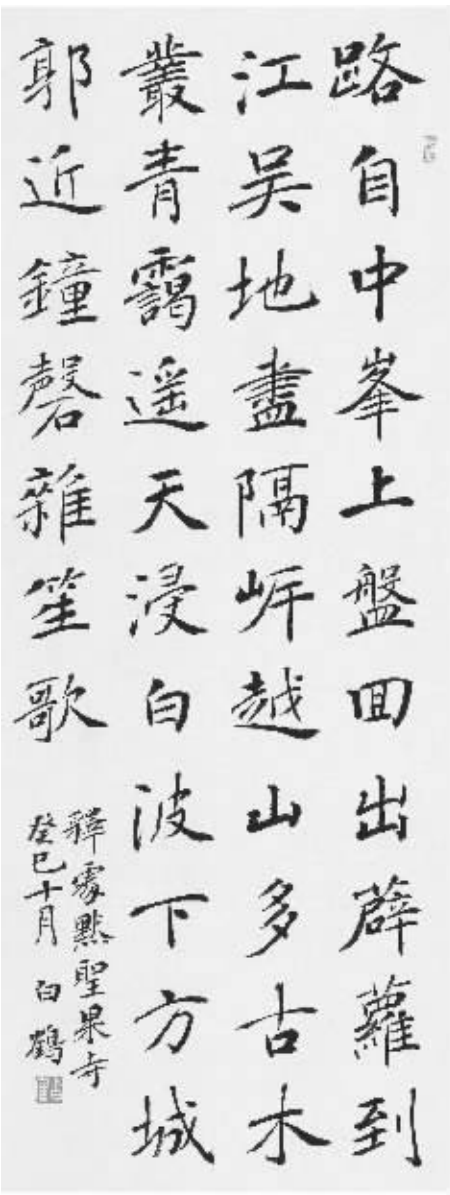 路自中峯上盤回出薜蘿到
江吴地盡隔岸越山多古木
叢青靄遥天浸白波下方城
郭近鐘磬雜笙歌
釋處默聖果寺
癸巳十月 白鶴